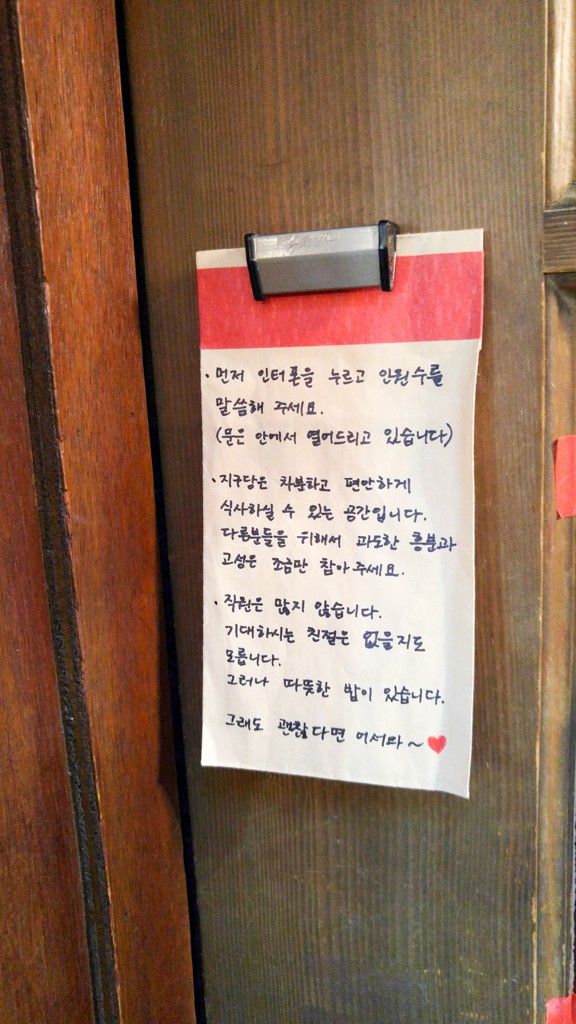 · 먼저 인터폰을 누르고 인원수를
말씀해 주세요.
(문은 안에서 열어드리고 있습니다)
· 지구당은 차분하고 편안하게
식사하실 수 있는 공간입니다.
다른분들을 위해서 과도한 흥분과
고성은 조금만 참아주세요.
· 직원은 많지 않습니다.
기대하시는 친절은 없을지도
모릅니다.
그러나 따뜻한 밥이 있습니다.
그래도 괜찮다면 어서와~♥